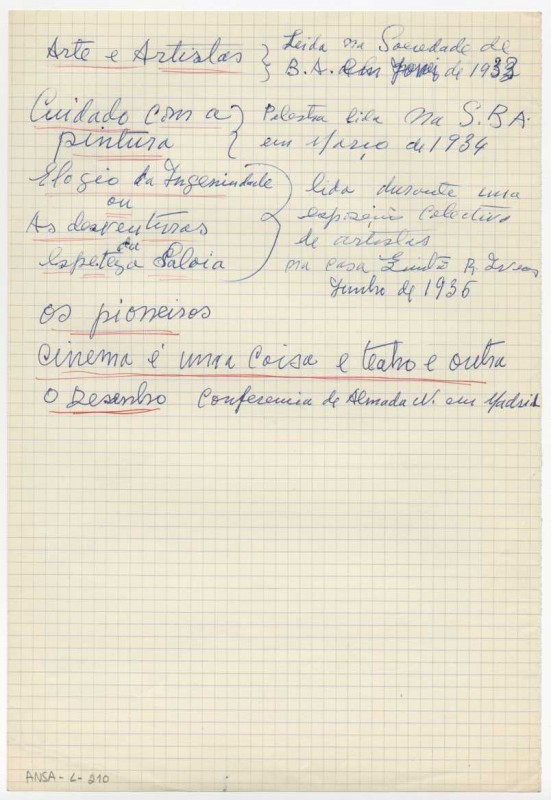 Arte e Artistas } Leida na Sociedade de
B.A. de 1933
Cuidado com a } Palestra lida na S.B.A.
pintura em Março de 1934
Elogio da Ingenuidade
ou
As desventuras
da
esperteza Saloia
lida durante uma
exposição colectiva
de artistas
na casa
Junho de 1935
os pioneiros
cinema é uma coisa e teatro e outra
O Desenho Conferencia de Almada N. em Madrid
ANSA-L-210